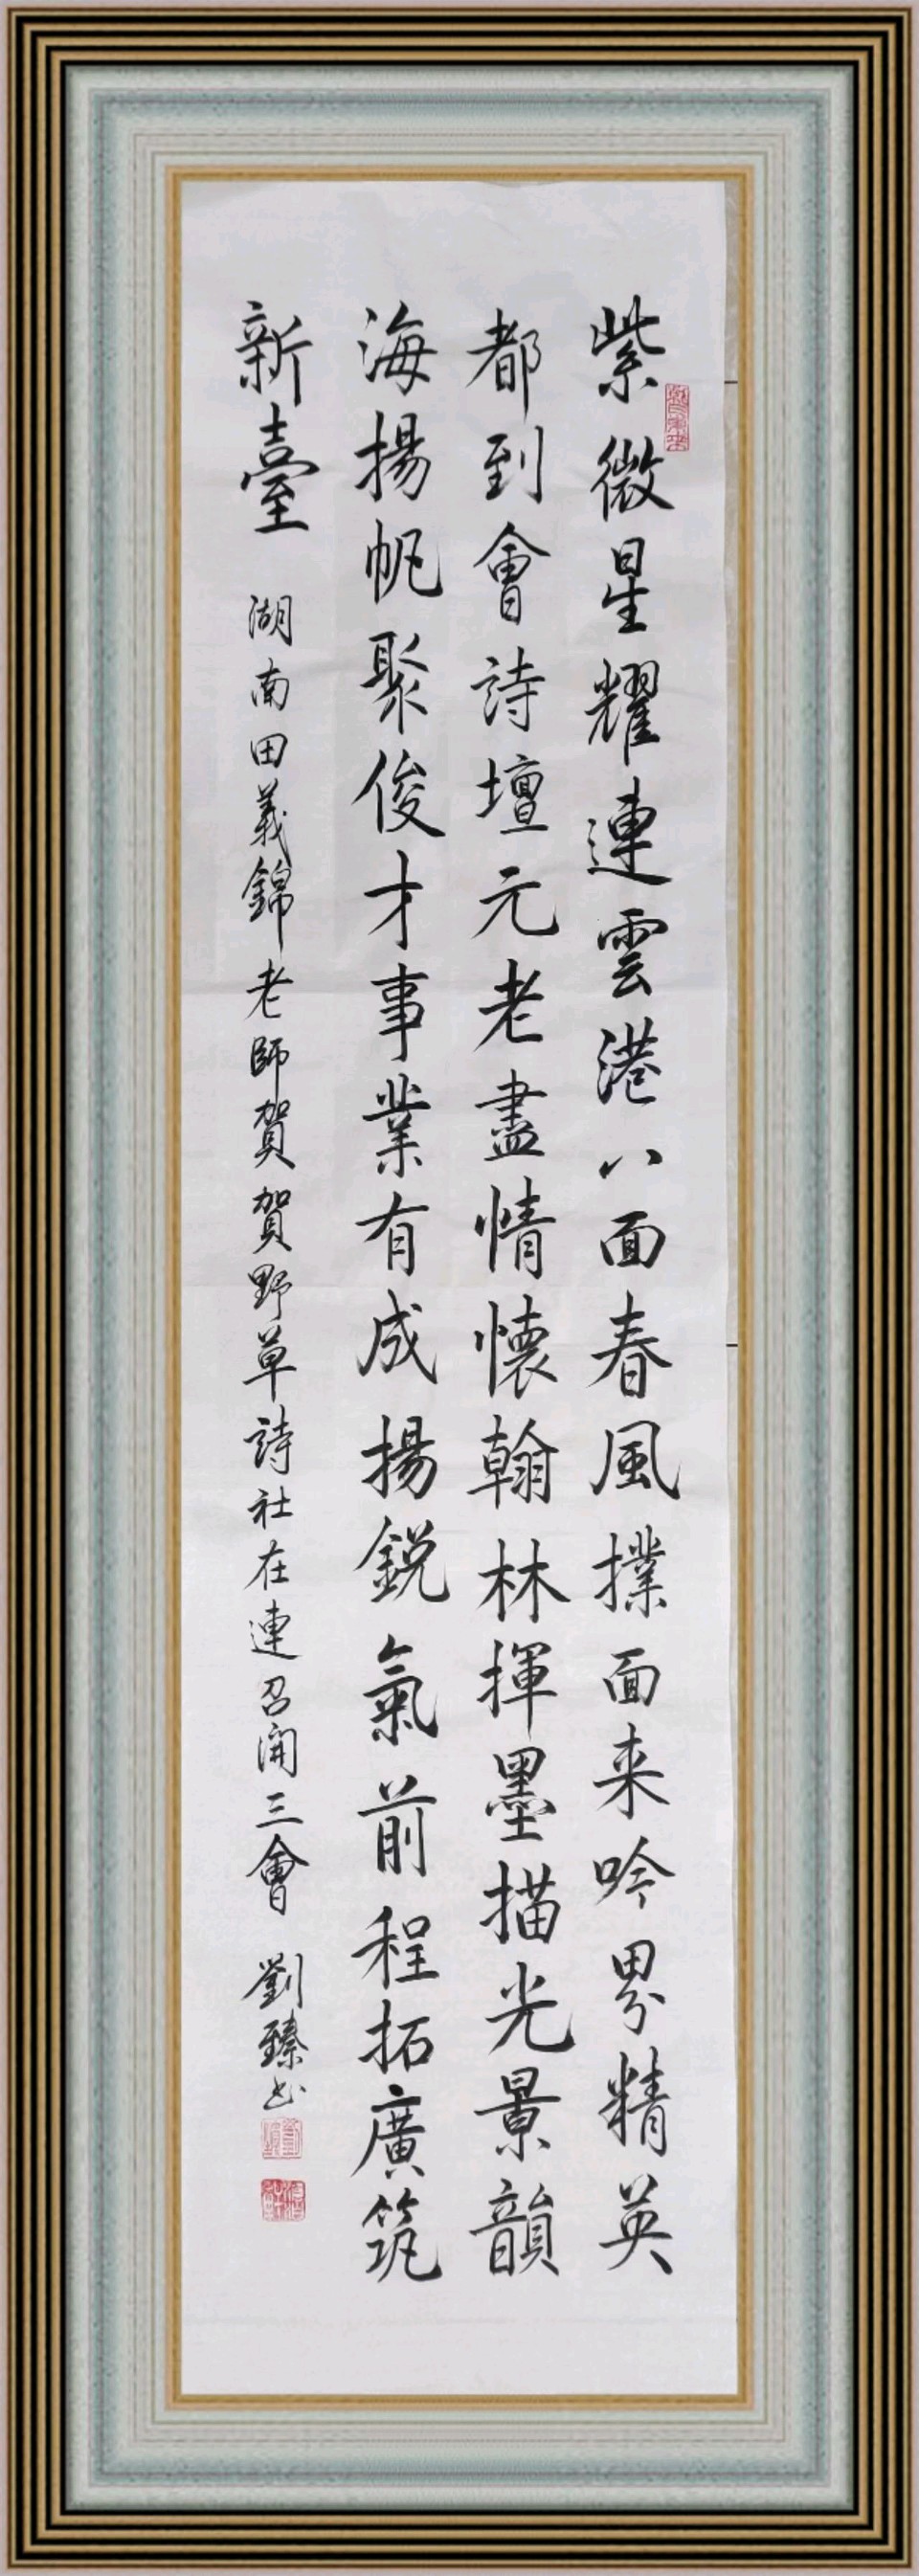 紫微星耀連雲港八面春風撲面来吟界精英
都到會詩壇元老盡情懷翰林揮墨描光景韻
海揚帆聚俊才事業有成揚銳氣前程拓廣筑
新臺
湖南田義錦老師賀賀野草詩社在連召開三會
劉臻书